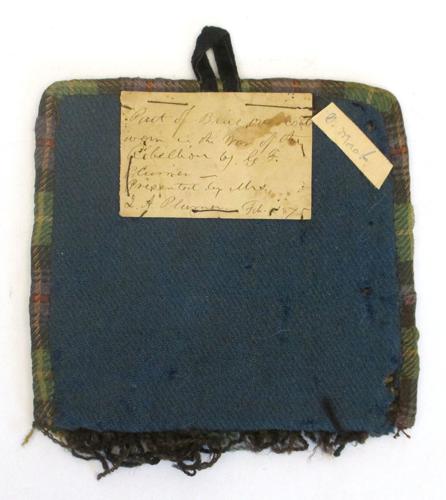 Part of Blue over coat
worn in the War of the
Rebellion by G. F.
Plummer —
Presented by Mrs
L A Plummer Feb